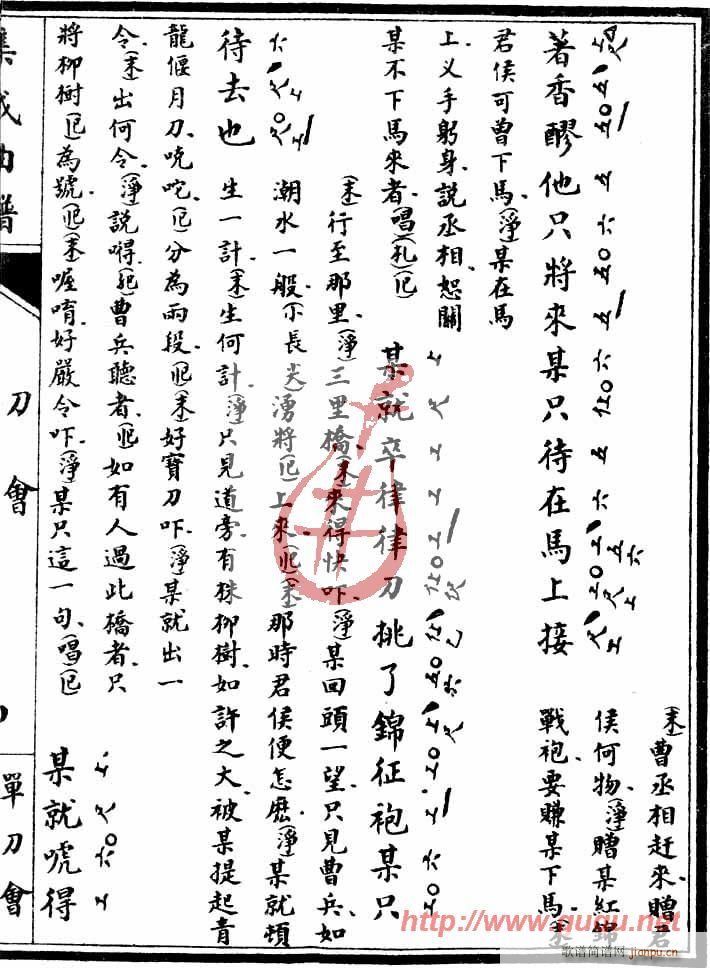 著香醪他只將來某只待在馬上接
(末)曹丞相赶來贈君
侯何物(淨)贈某紅錦
戰袍要賺某下馬(末)
君侯可曾下馬(淨)某在馬
上义手躬身說丞相恕關
某不下馬來者(唱)(札)
某就卒律律刀挑了錦征袍某只
待去也
(末)行至那里(淨)三里橋(末)來得快吓(淨)某回頭一望只見曹兵如
潮水一般 長尖 湧將上來(末)那時君侯便怎麽(淨)某就頓
生一計(末)生何計(淨)只見道旁有株柳樹如許之大被某提起青
龍偃月刀吭咜分為兩段(末)好寶刀吓(淨)某就出一
令(末)出何令(淨)說嘚曹兵聽者如有人過此橋者只
將柳樹為號(末)喔唷好嚴令吓(淨)某只這一句(唱)
某就唬得
集成曲譜
刀會
單刀會
http://www.ququ.net
歌谱简谱网
jianpu.cn